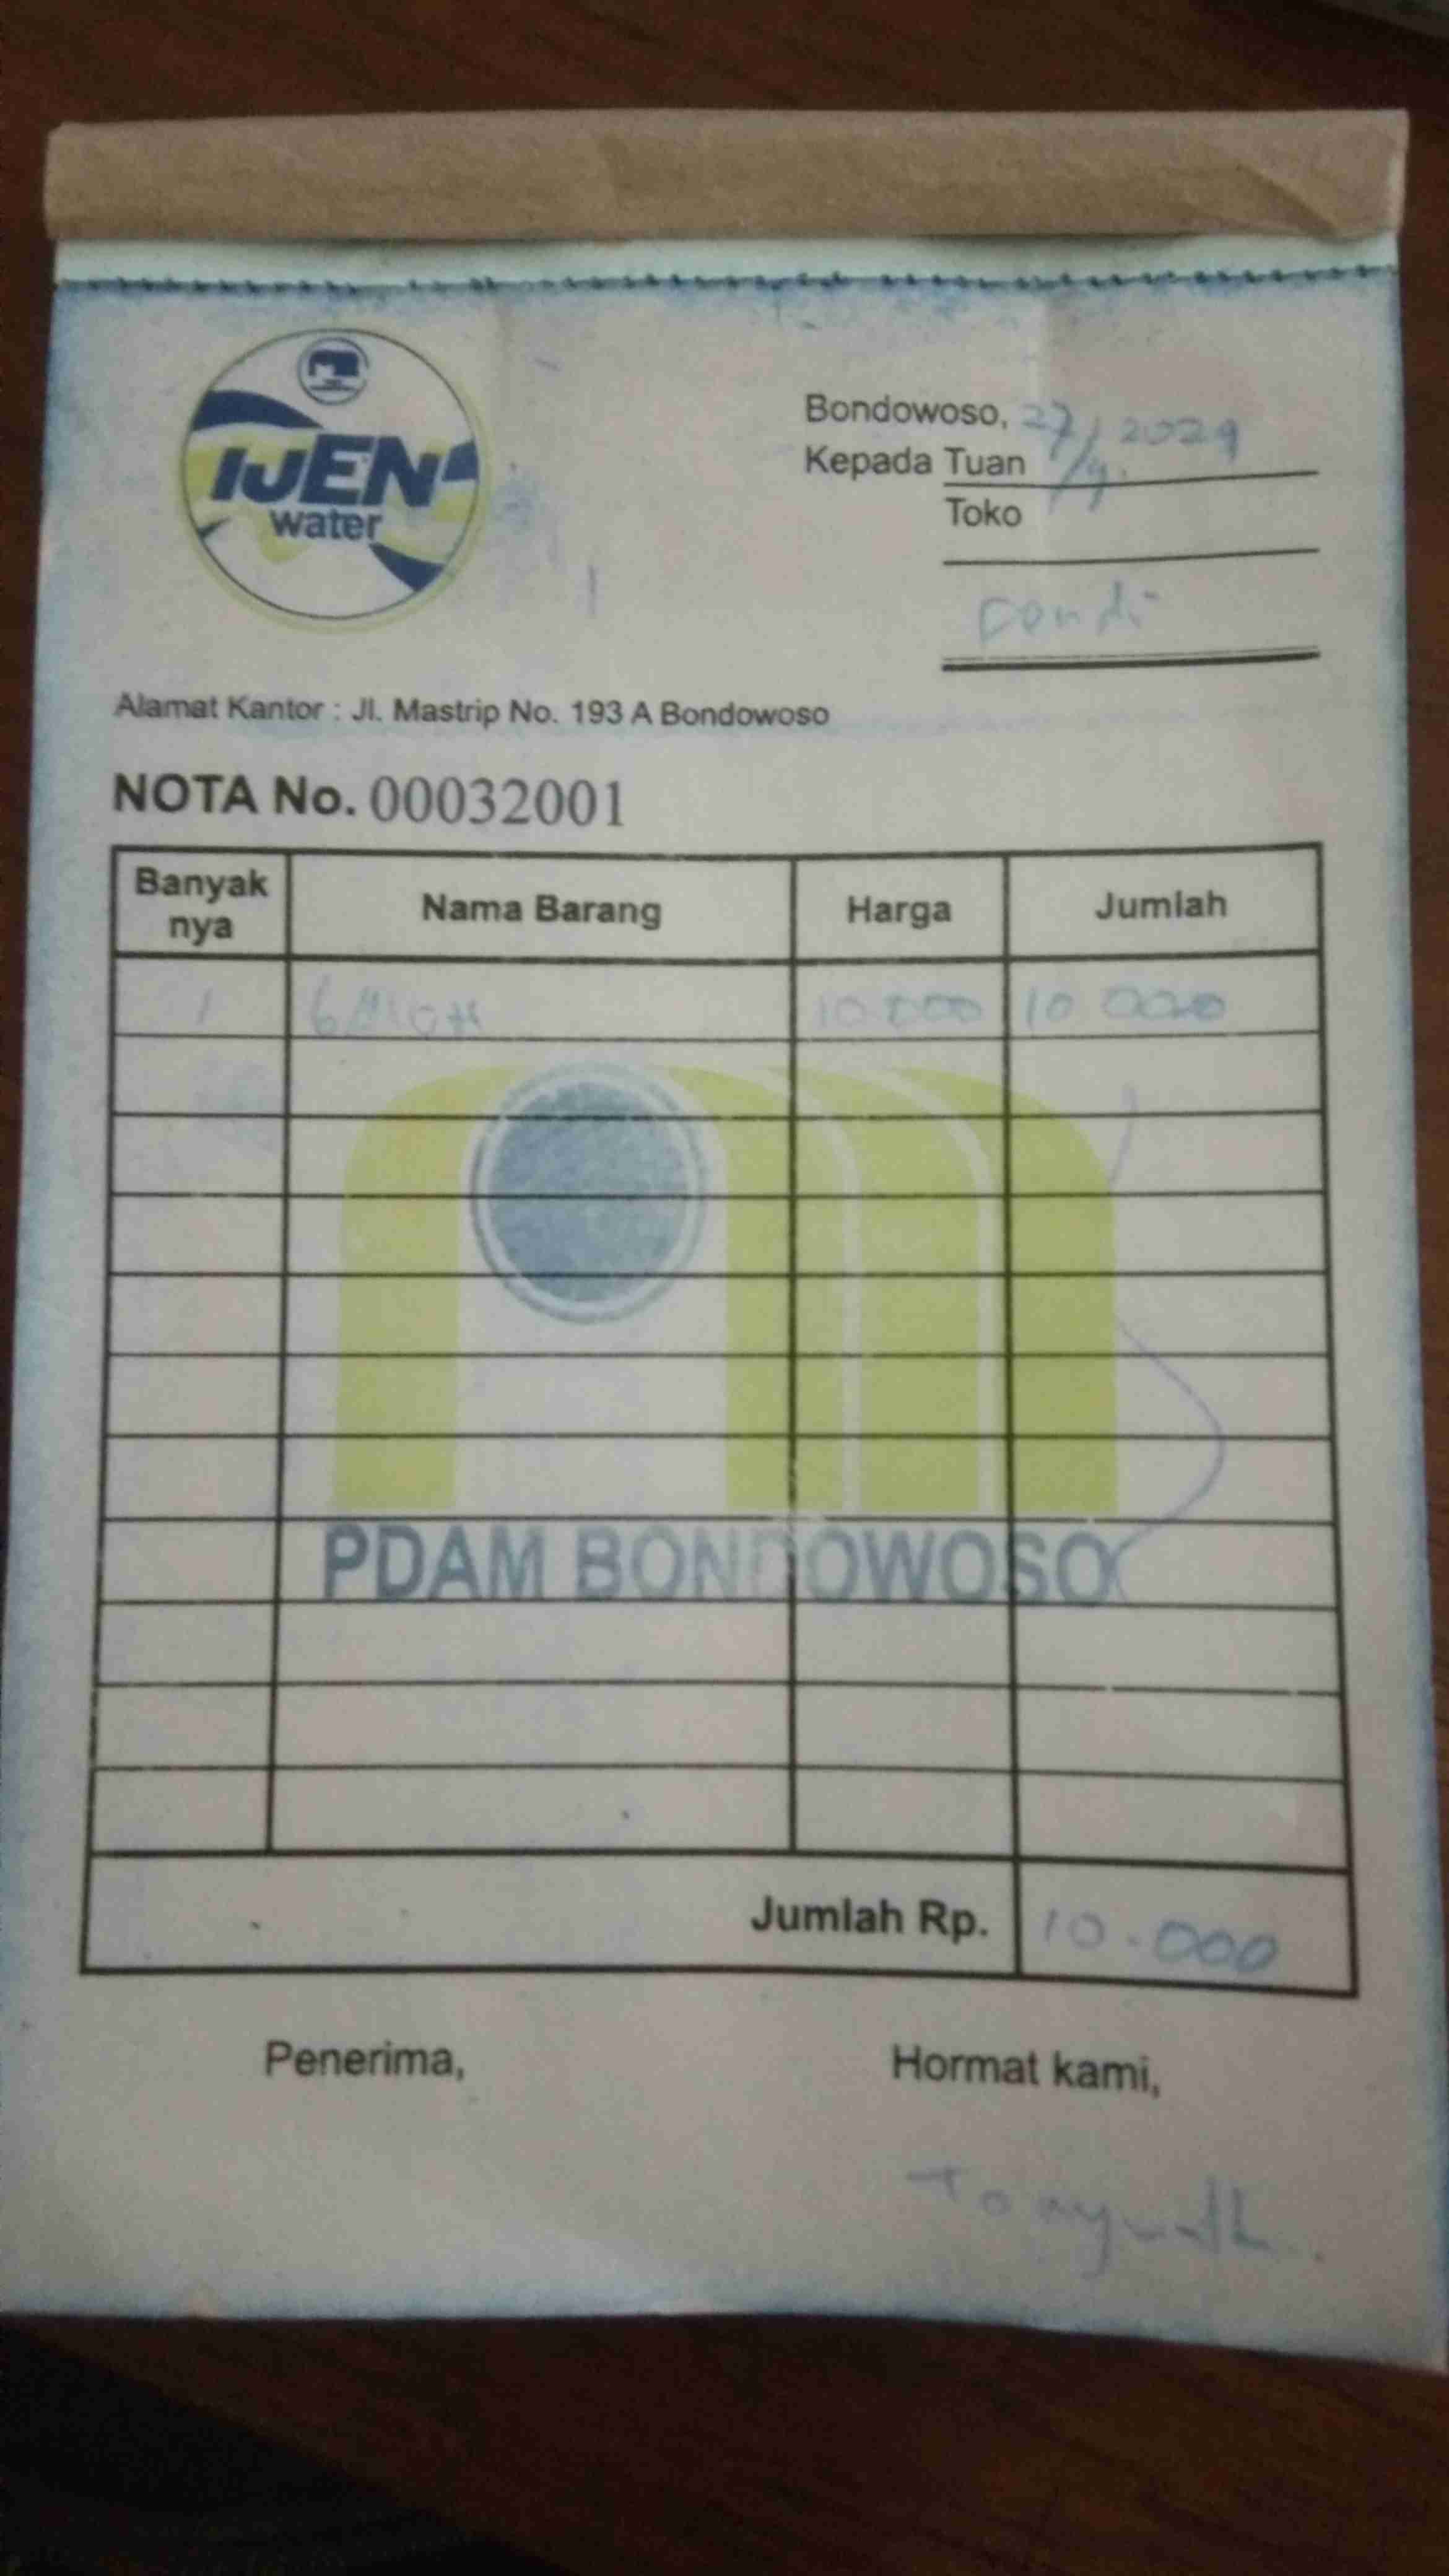 IJEN
water
Bondowoso, 27/9. 2024
Kepada Tuan
Toko
Dendi
Alamat Kantor : Jl. Mastrip No. 193 A Bondowoso
NOTA No. 00032001
Banyak nya Nama Barang Harga Jumlah
1 10.000 10.000
PDAM BONDOWOSO
Jumlah Rp. 10.000
Penerima, Hormat kami,